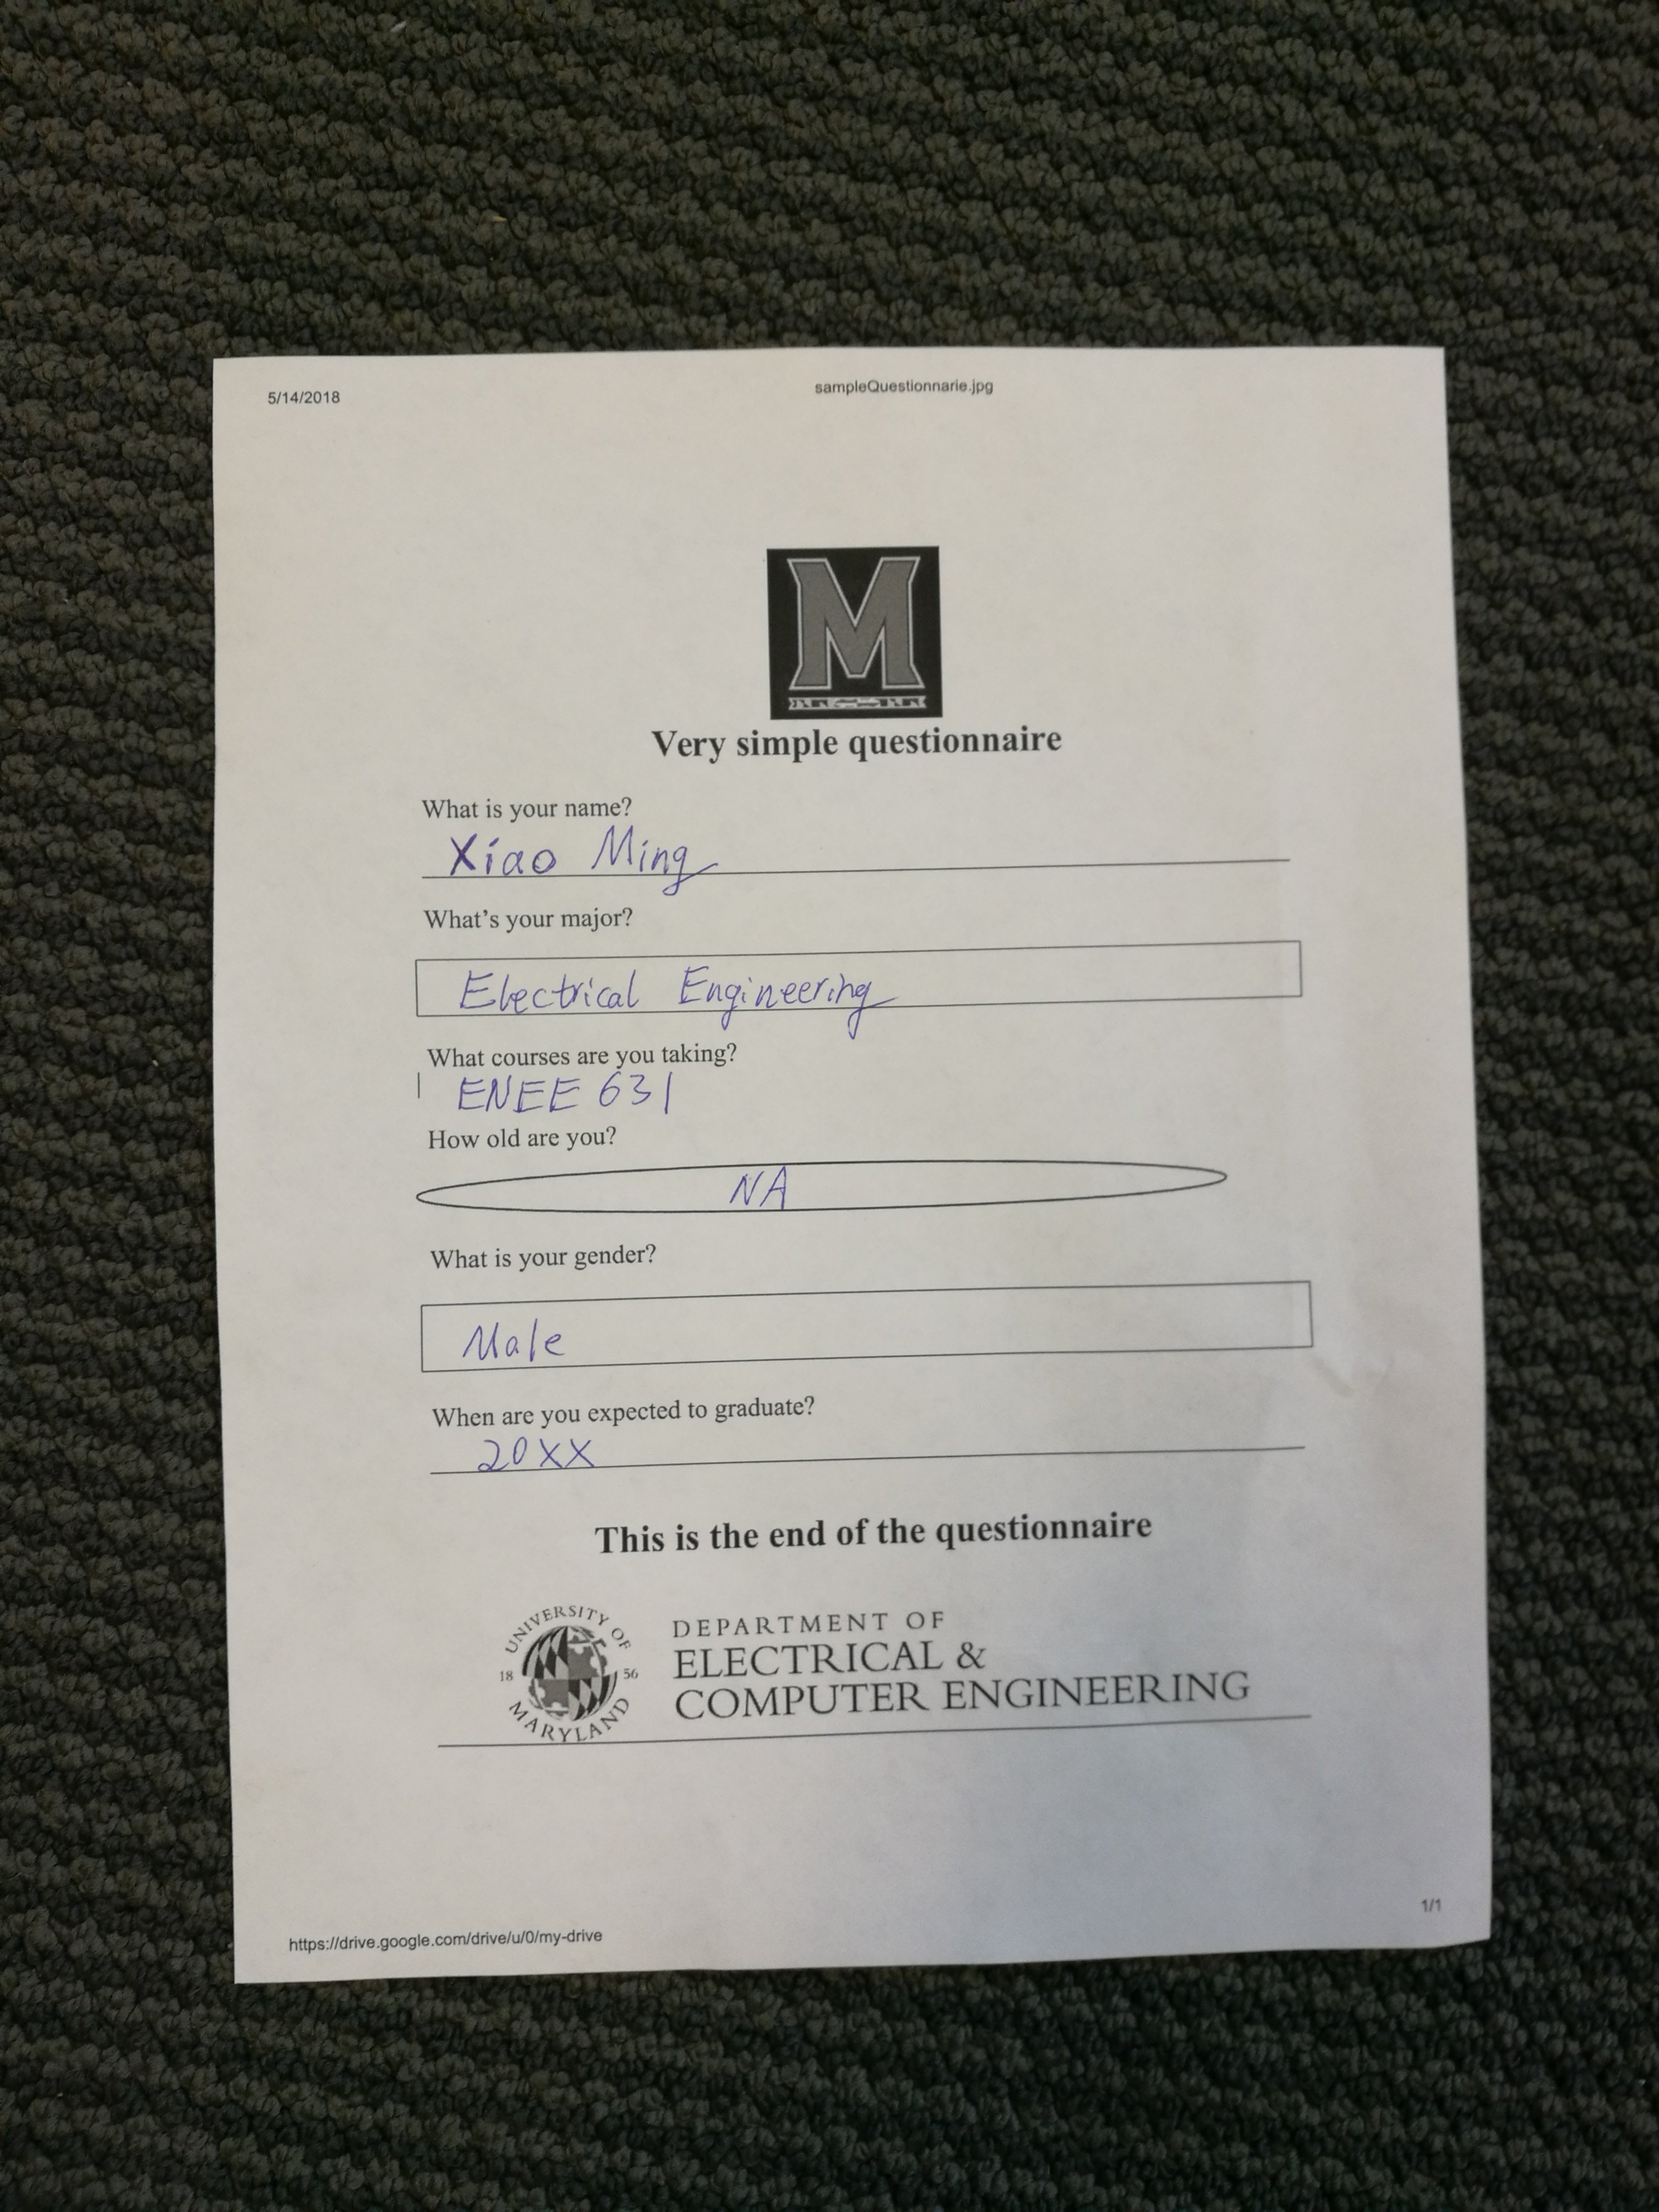 5/14/2018 sampleQuestionnarie.jpg
M
Very simple questionnaire
What is your name?
Xiao Ming
What's your major?
Electrical Engineering
What courses are you taking?
ENEE 631
How old are you?
NA
What is your gender?
Male
When are you expected to graduate?
20XX
This is the end of the questionnaire
UNIVERSITY OF
18 56
MARYLAND
DEPARTMENT OF
ELECTRICAL &
COMPUTER ENGINEERING
https://drive.google.com/drive/u/0/my-drive 1/1